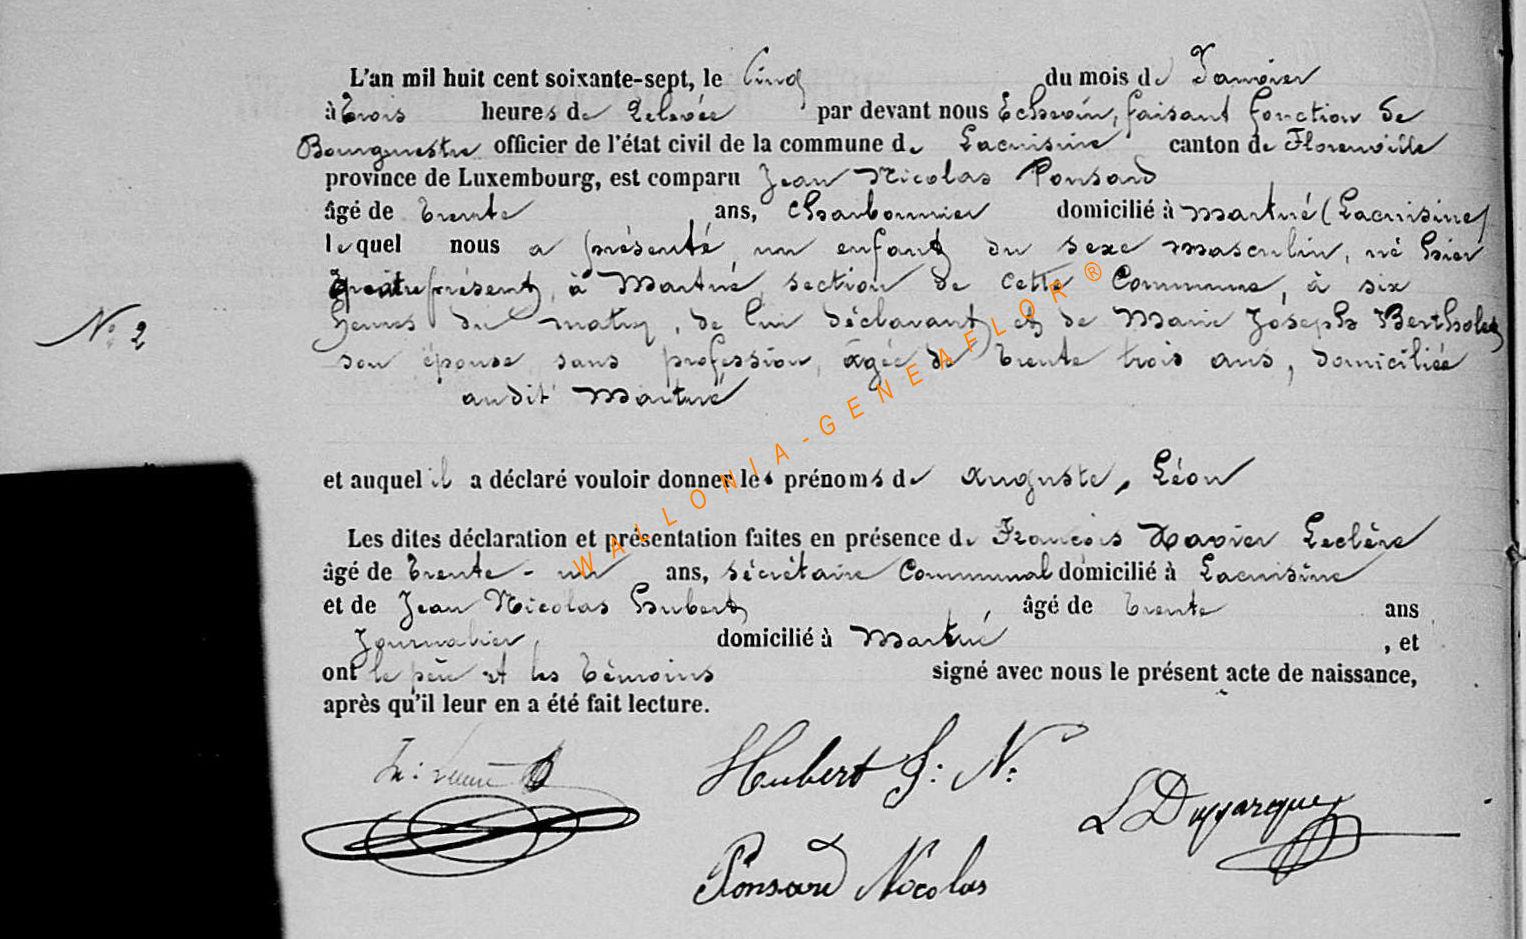 L'an mil huit cent soixante-sept, le Cinq du mois de Janvier
à trois heures de Relevée par devant nous Echevin, faisant fonction de
Bourgmestre officier de l'état civil de la commune de Lacuisine canton de Florenville
province de Luxembourg, est comparu Jean Nicolas Ponsard
âgé de trente ans, Charbonnier domicilié à Martué (Lacuisine)
lequel nous a présenté un enfant du sexe masculin, né hier
quatre présent, à Martué, section de cette Commune, à six
heures du matin, de lui déclarant et de Marie Joseph Bertholet
N° 2
son épouse sans profession, âgée de trente trois ans, domiciliée
audit Martué
et auquel il a déclaré vouloir donner les prénoms de Auguste, Léon
Les dites déclaration et présentation faites en présence de François Xavier Leclère
âgé de trente-un ans, sécrétaire Communal domicilié à Lacuisine
et de Jean Nicolas Hubert âgé de trente ans
Journalier, domicilié à Martué, et
ont le père et les témoins signé avec nous le présent acte de naissance,
après qu'il leur en a été fait lecture.
Hubert J: N:
Ponsard Nicolas
WALLONIA-GENEAFLOR®